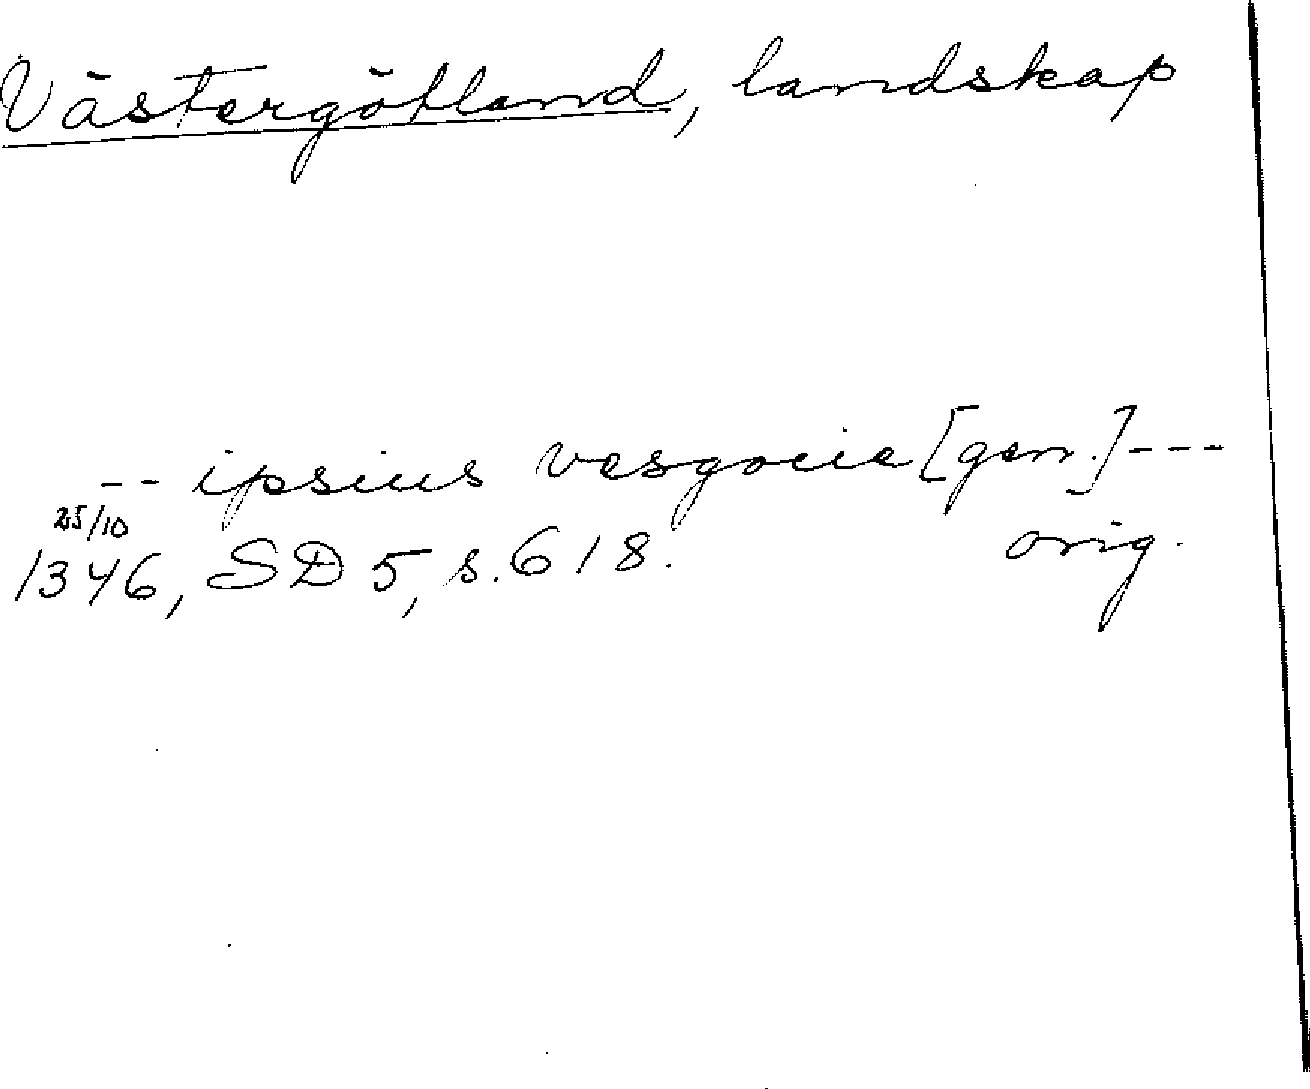 Västergötland, landskap
-- ipsius vesgocie [gen.] ---
25/10
1346, SD 5, s. 618. orig.